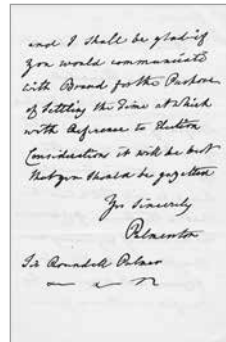 and I shall be glad if
you would communicate
with Brand for the Purpose
of settling the Time at which
with Reference to Election
Considerations it will be best
that you should be gazetted
Yrs sincerely
Palmerston
Sir Roundell Palmer